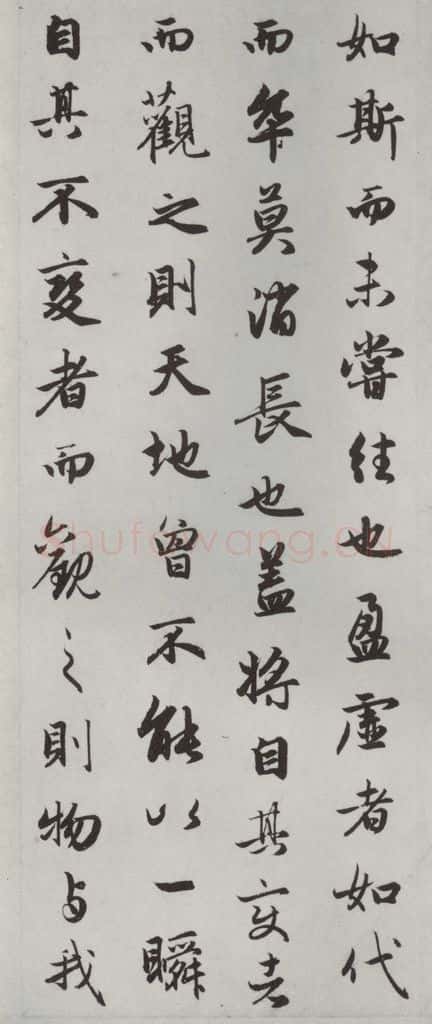 如斯而未嘗往也盈虛者如代
而卒莫消長也盖將自其变者
而觀之則天地曾不能以一瞬
自其不變者而觀之則物与我
Shufawang.CN